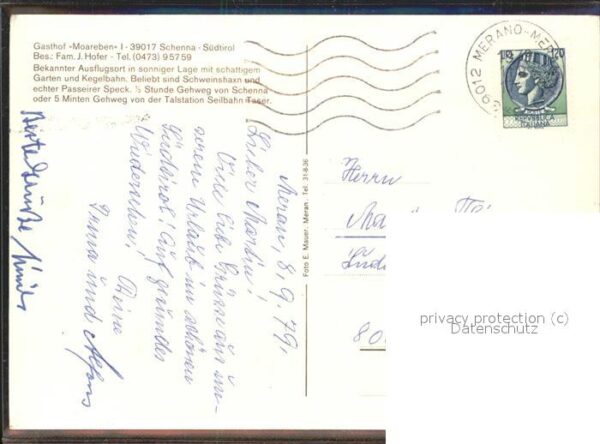 Gasthof «Moareben» I - 39017 Schenna - Südtirol
Bes.: Fam. J. Hofer - Tel. (0473) 95759
Bekannter Ausflugsort in sonniger Lage mit schattigem
Garten und Kegelbahn. Beliebt sind Schweinshaxn und
echter Passeirer Speck. ½ Stunde Gehweg von Schenna
oder 5 Minten Gehweg von der Talstation Seilbahn Taser.
Meran, 8.9.79.
Lieber Martin!
Viele liebe Grüsse aus un-
serem Urlaub im schönen
Südtirol! Auf gesundes
Wiedersehen! Deine
und Alfons
Beste Grüße
Foto E. Mauer, Meran, Tel. 31-8-36
39012 MERANO-ME
170
REPUBBLICA
ITALIANA
Herrn
80
privacy protection (c)
Datenschutz